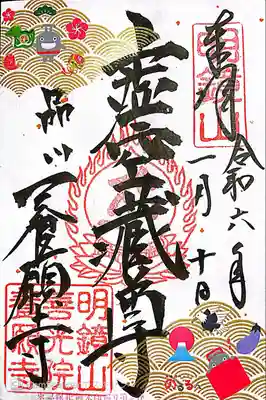 奉拝
明鏡山
令和六年
一月十日
虚空藏尊
品川 養願寺
明鏡山
善光院
養願寺